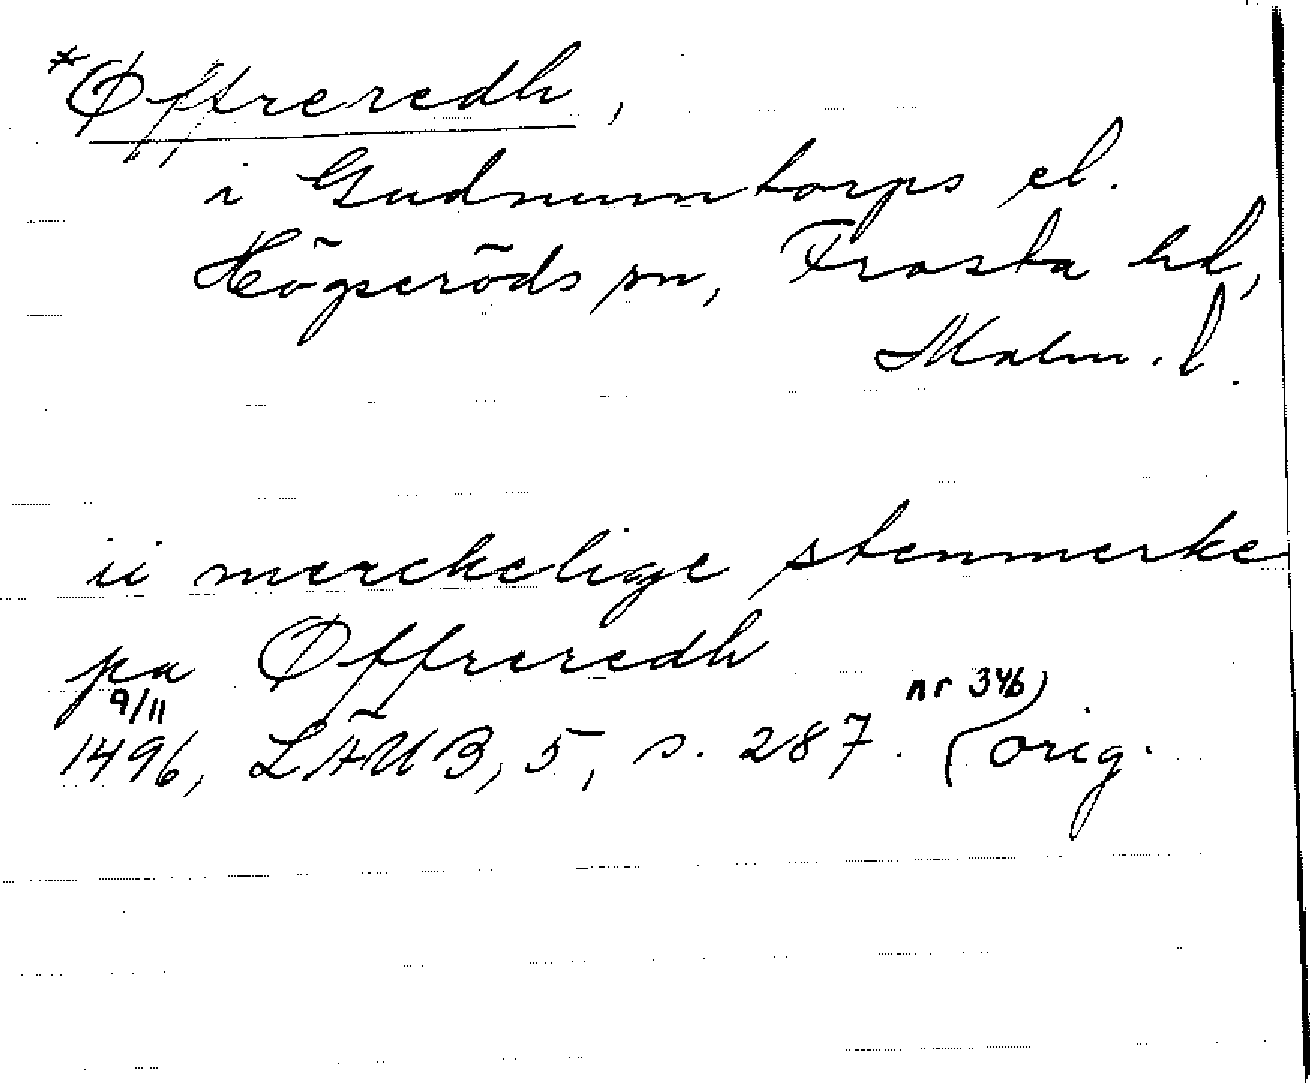 *Øffreredh,
i Gudmuntorps el.
Högseröds sn, Frosta hd,
Malm. l.
ii merckelige stenmerke
pa Øffreredh
9/11
1496, LÄUB, 5, s. 287. nr 346) (orig.